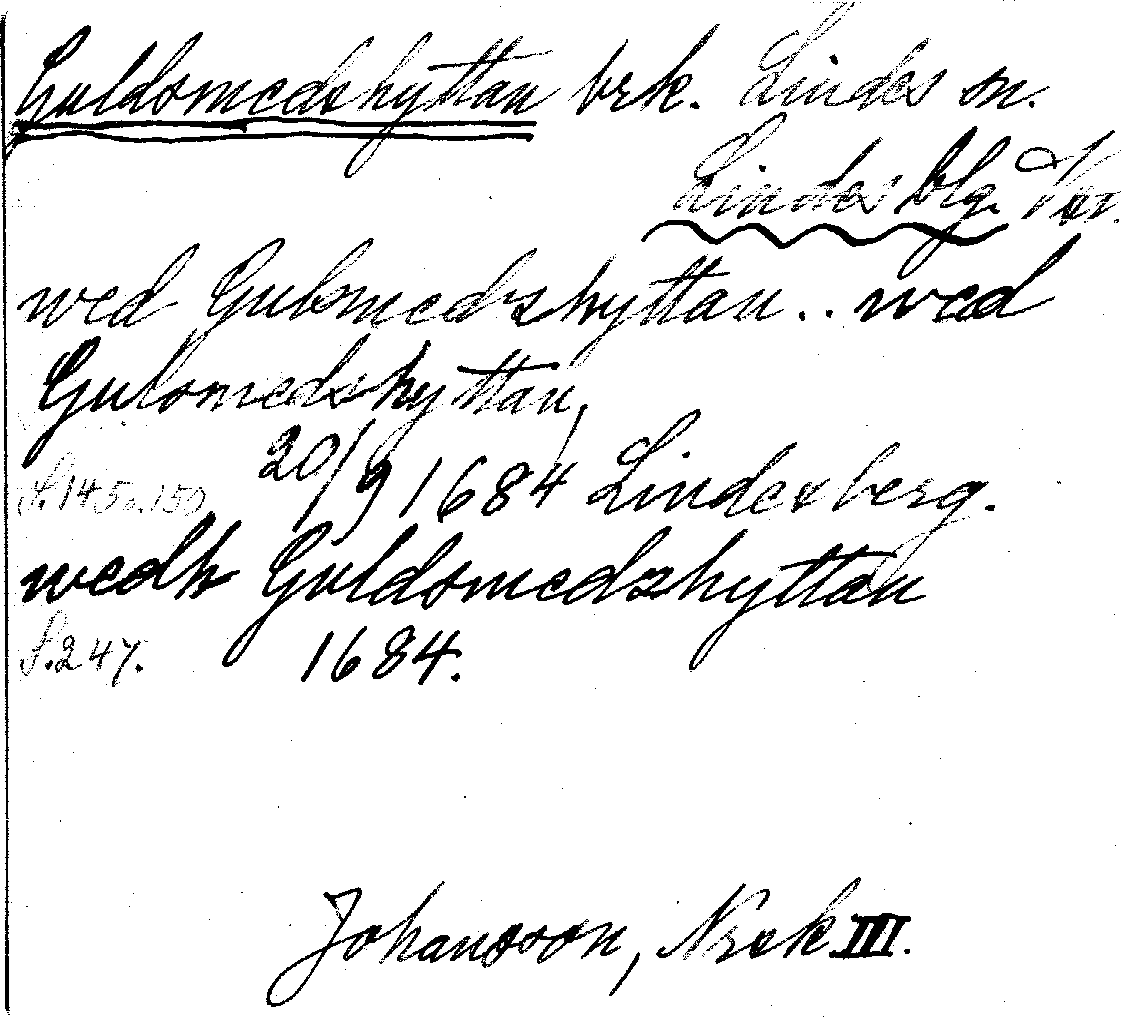 Guldsmedshyttan brk. Lindes sn.
Lindesblg. Vm.
wed Gulsmedszhyttan .. wed
Gulsmedshyttan,
20/9 1684 Lindesberg.
s. 145 o. 150
wedh Guldsmedzhyttan
s. 247. 1684.
Johansson, Nrek III.